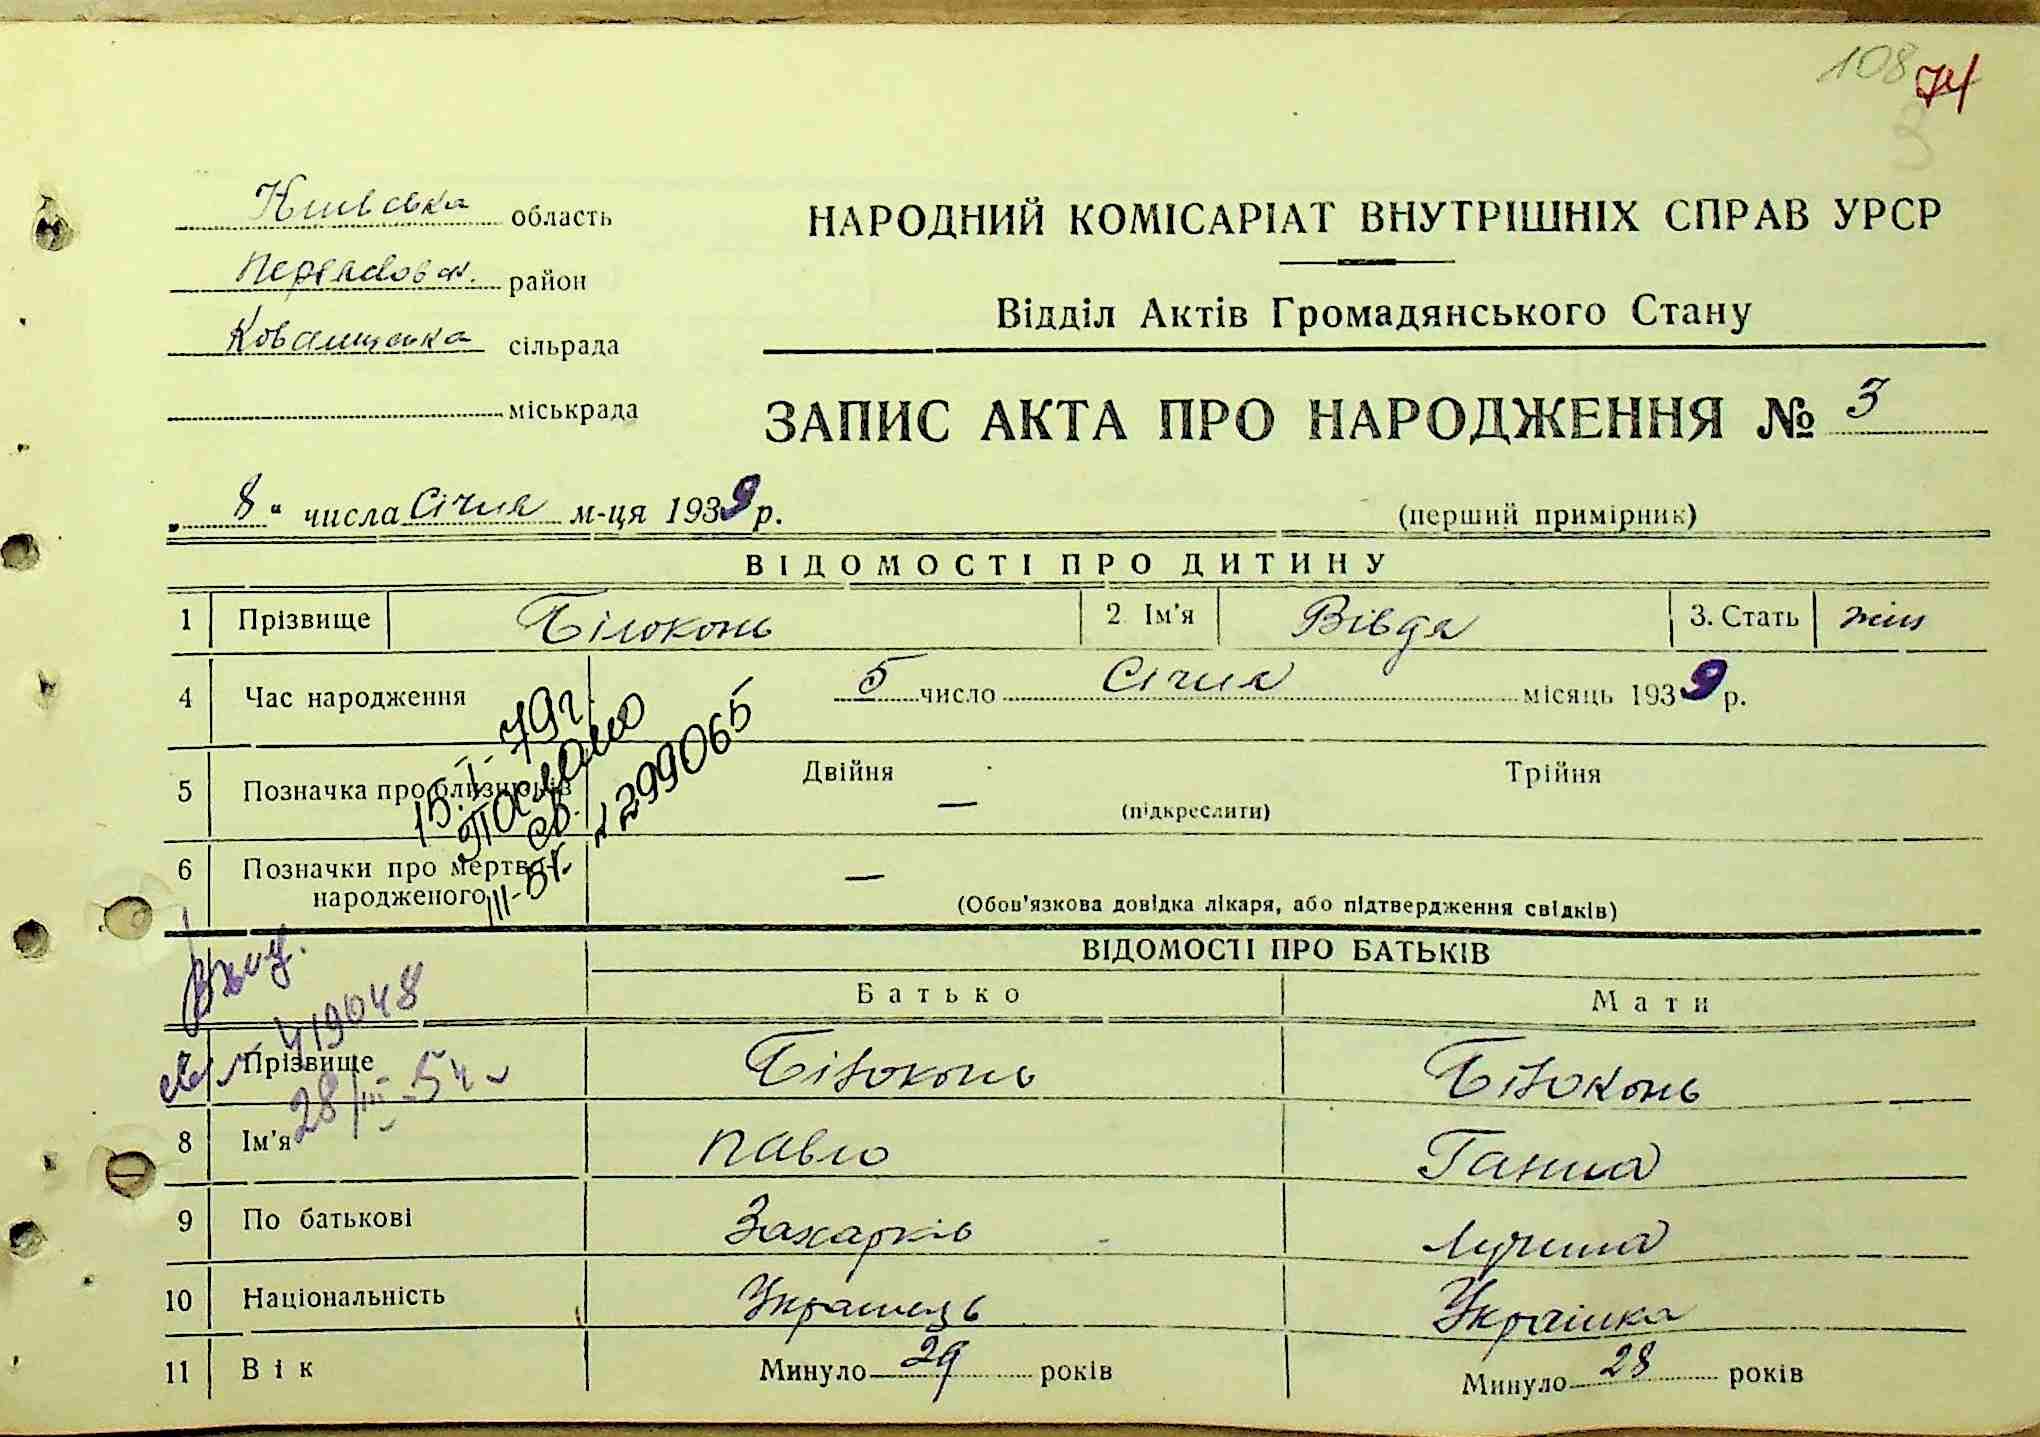 108 74
Київська область
район
Ковалинська сільрада
міськрада
НАРОДНИЙ КОМІСАРІАТ ВНУТРІШНІХ СПРАВ УРСР
Відділ Актів Громадянського Стану
ЗАПИС АКТА ПРО НАРОДЖЕННЯ № 3
„ 8 “ числа Січня м-ця 1939 р.
(перший примірник)
ВІДОМОСТІ ПРО ДИТИНУ
1 Прізвище Білоконь 2 Ім'я Вівдя 3. Стать жін
4 Час народження 5 число Січня місяць 1939 р.
5 Позначка про близнюків Двійня — (підкреслити) Трійня
6 Позначки про мертво-
народженого —
(Обов'язкова довідка лікаря, або підтвердження свідків)
15.I-79г.
св.
III-БК №299065
ВІДОМОСТІ ПРО БАТЬКІВ
Батько Мати
419048
28/III-54
Прізвище Білоконь Білоконь
8 Ім'я Павло Ганна
9 По батькові Захарків
10 Національність Українець Українка
11 Вік Минуло 29 років Минуло 28 років